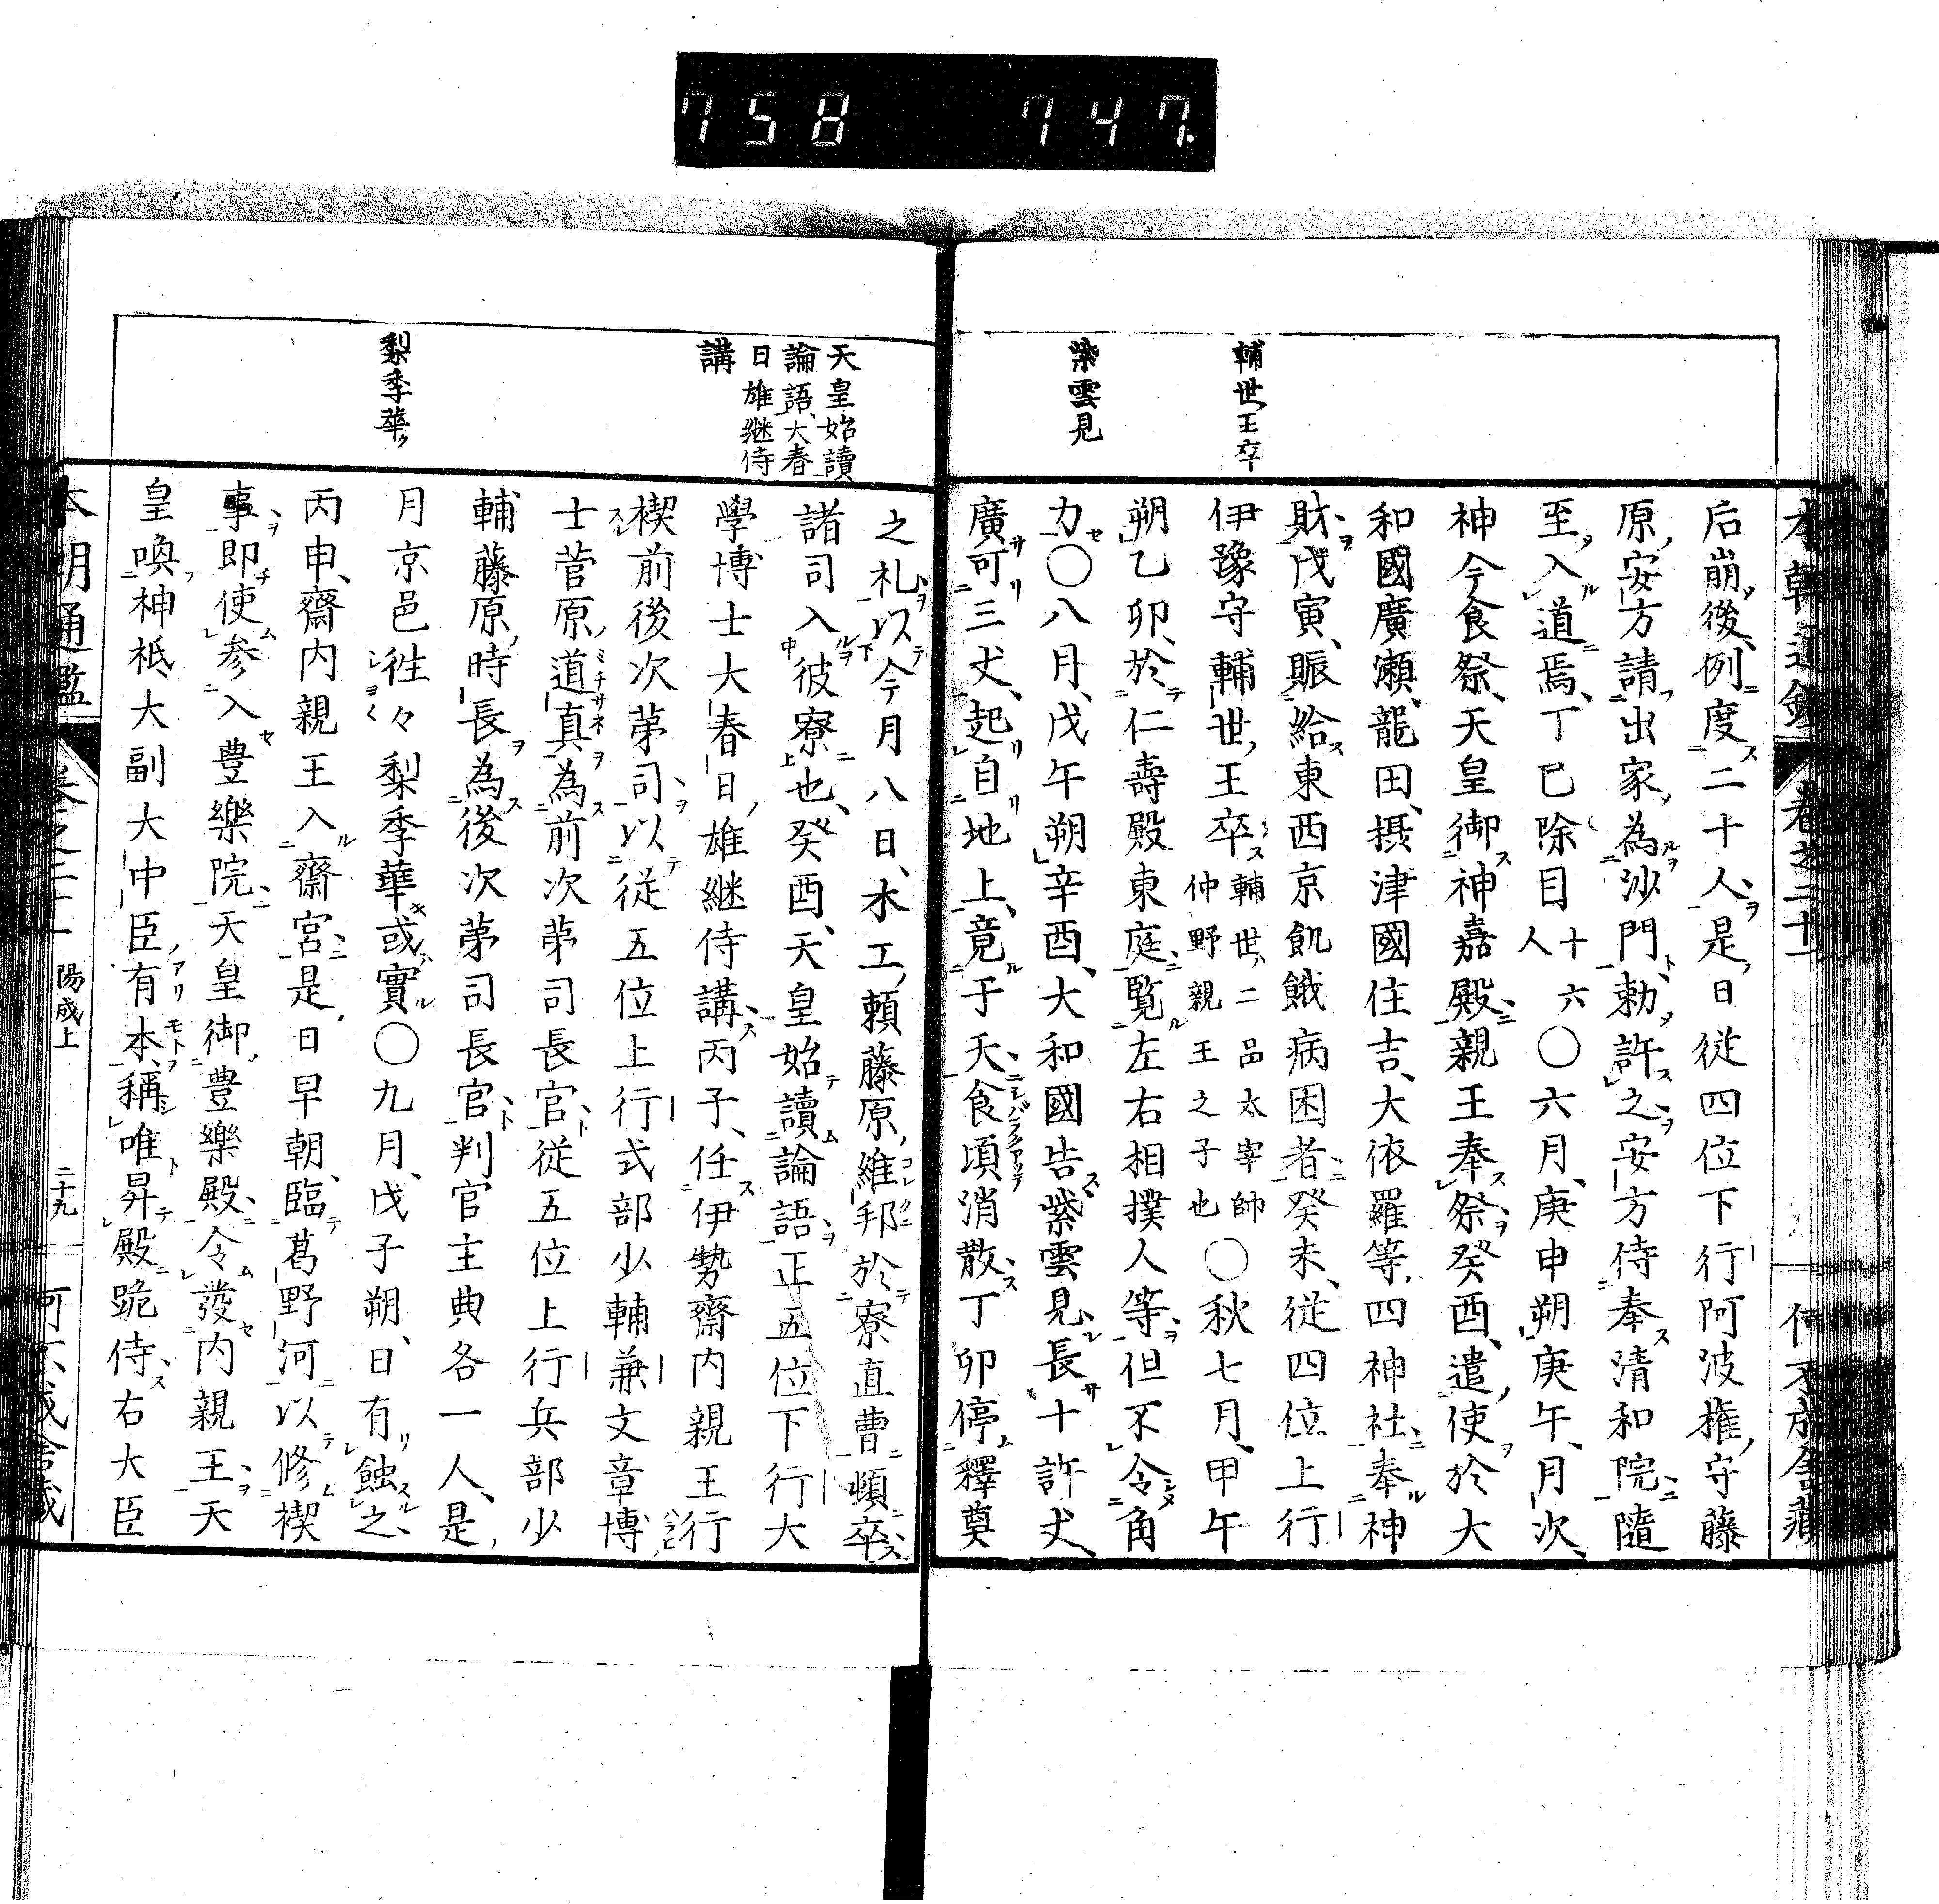 758 747
輔世王卒
紫雲見
后崩後例度二十人是日従四位下行阿波権守藤
原安方請出家為沙門勅許之安方侍奉清和院隨
至入道焉丁巳除目十六人〇六月庚申朔庚午月次
神今食祭天皇御神嘉殿親王奉祭癸酉遣使於大
和國廣瀬龍田摂津國住吉大依羅等四神社奉神
財戊寅賑給東西京飢餓病困者癸未従四位上行
伊豫守輔世王卒輔世二品太宰帥仲野親王之子也〇秋七月甲午
朔乙卯於仁壽殿東庭覧左右相撲人等但不令角
力〇八月戊午朔辛酉大和國告紫雲見長十許丈
廣可三丈起自地上竟于天食頃消散丁卯停釋奠
天皇始讀
論語大春
日雄継侍
講
梨季華
之礼以今月八日木工頭藤原維邦於寮直曹頓卒
諸司入彼寮也癸酉天皇始讀論語正五位下行大
學博士大春日雄継侍講丙子任伊勢齋内親王行
禊前後次第司以従五位上行式部少輔兼文章博
士菅原道真為前次第司長官従五位上行兵部少
輔藤原時長為後次第司長官判官主典各一人是
月京邑往々梨季華或實〇九月戊子朔日有蝕之
丙申齋内親王入齋宮是日早朝臨葛野河以修禊
事即使参入豊樂院天皇御豊樂殿令發内親王天
皇喚神祇大副大中臣有本稱唯昇殿跪侍右大臣
本朝通鑑 巻之二十 陽成上 二十九